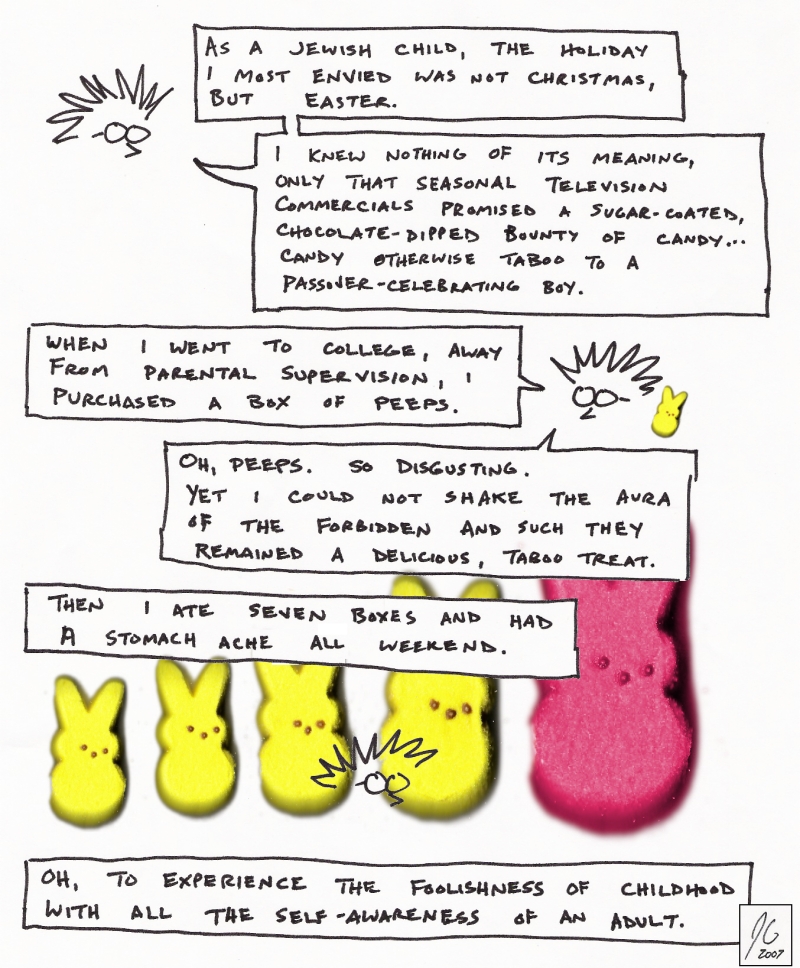 AS A JEWISH CHILD, THE HOLIDAY
I MOST ENVIED WAS NOT CHRISTMAS,
BUT EASTER.
I KNEW NOTHING OF ITS MEANING,
ONLY THAT SEASONAL TELEVISION
COMMERCIALS PROMISED A SUGAR-COATED,
CHOCOLATE-DIPPED BOUNTY OF CANDY...
CANDY OTHERWISE TABOO TO A
PASSOVER-CELEBRATING BOY.
WHEN I WENT TO COLLEGE, AWAY
FROM PARENTAL SUPERVISION, I
PURCHASED A BOX OF PEEPS.
OH, PEEPS. SO DISGUSTING.
YET I COULD NOT SHAKE THE AURA
OF THE FORBIDDEN AND SUCH THEY
REMAINED A DELICIOUS, TABOO TREAT.
THEN I ATE SEVEN BOXES AND HAD
A STOMACH ACHE ALL WEEKEND.
OH, TO EXPERIENCE THE FOOLISHNESS OF CHILDHOOD
WITH ALL THE SELF-AWARENESS OF AN ADULT.
JG
2007